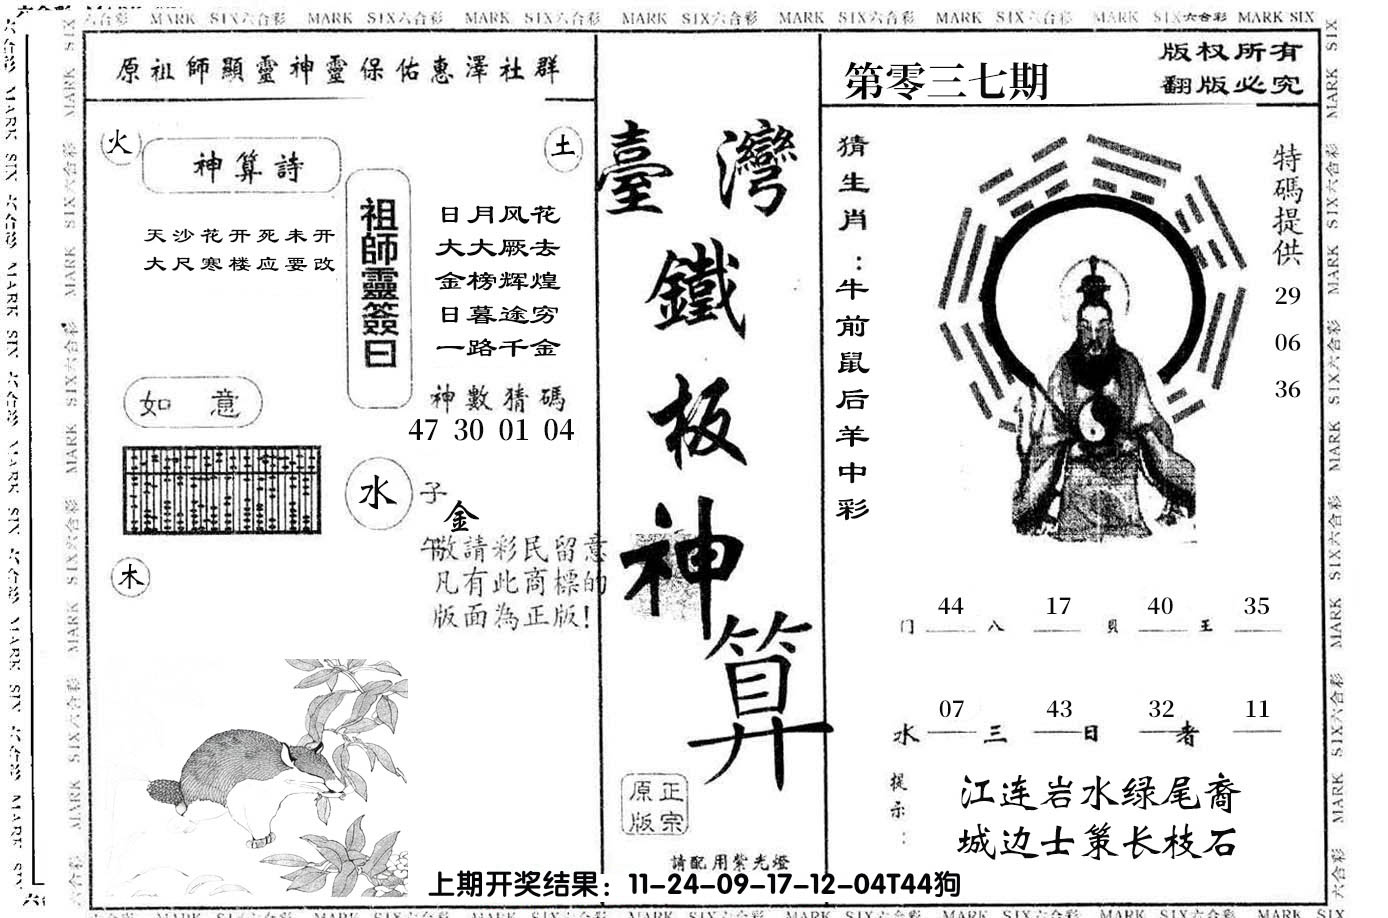 MARK SIX六合彩 MARK SIX六合彩 MARK SIX六合彩 MARK SIX六合彩 MARK SIX六合彩 MARK SIX六合彩 MARK SIX六合彩 MARK SIX
原祖師顯靈神靈保佑惠澤社群
火
土
神算詩
天沙花开死未开
大尺寒楼应要改
祖師靈簽曰
日月风花
大大厥去
金榜辉煌
日暮途穷
一路千金
神數猜碼
47 30 01 04
如意
水
子
金
午
木
敬請彩民留意
凡有此商標的
版面為正版!
臺灣
鐵
板
神
算
正宗
原版
請配用紫光燈
第零三七期
版权所有
翻版必究
猜生肖:牛前鼠后羊中彩
特碼提供
29
06
36
门 44 八 17 貝 40 王 35
水 07 三 43 日 32 者 11
提示:
江连岩水绿尾裔
城边士策长枝石
上期开奖结果：11-24-09-17-12-04T44狗